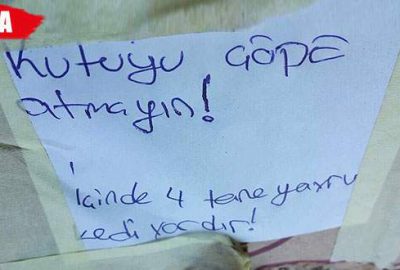 A
Kutuyu ÇÖPE
atmayın!
İçinde 4 tane yavru
kedi vardır!